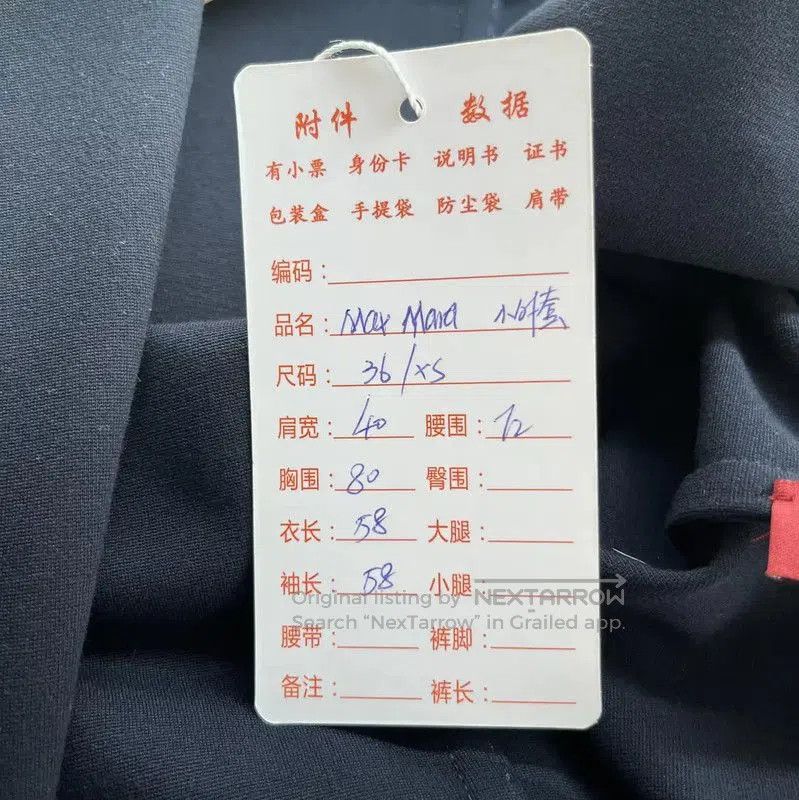 附件 数据
有小票 身份卡 说明书 证书
包装盒 手提袋 防尘袋 肩带
编码：
品名：Max Mara 小外套
尺码：36/XS
肩宽：40 腰围：72
胸围：80 臀围：
衣长：58 大腿：
袖长：58 小腿
Original listing by NEXTARROW
Search “NexTarrow” in Grailed app.
腰带： 裤脚：
备注： 裤长：